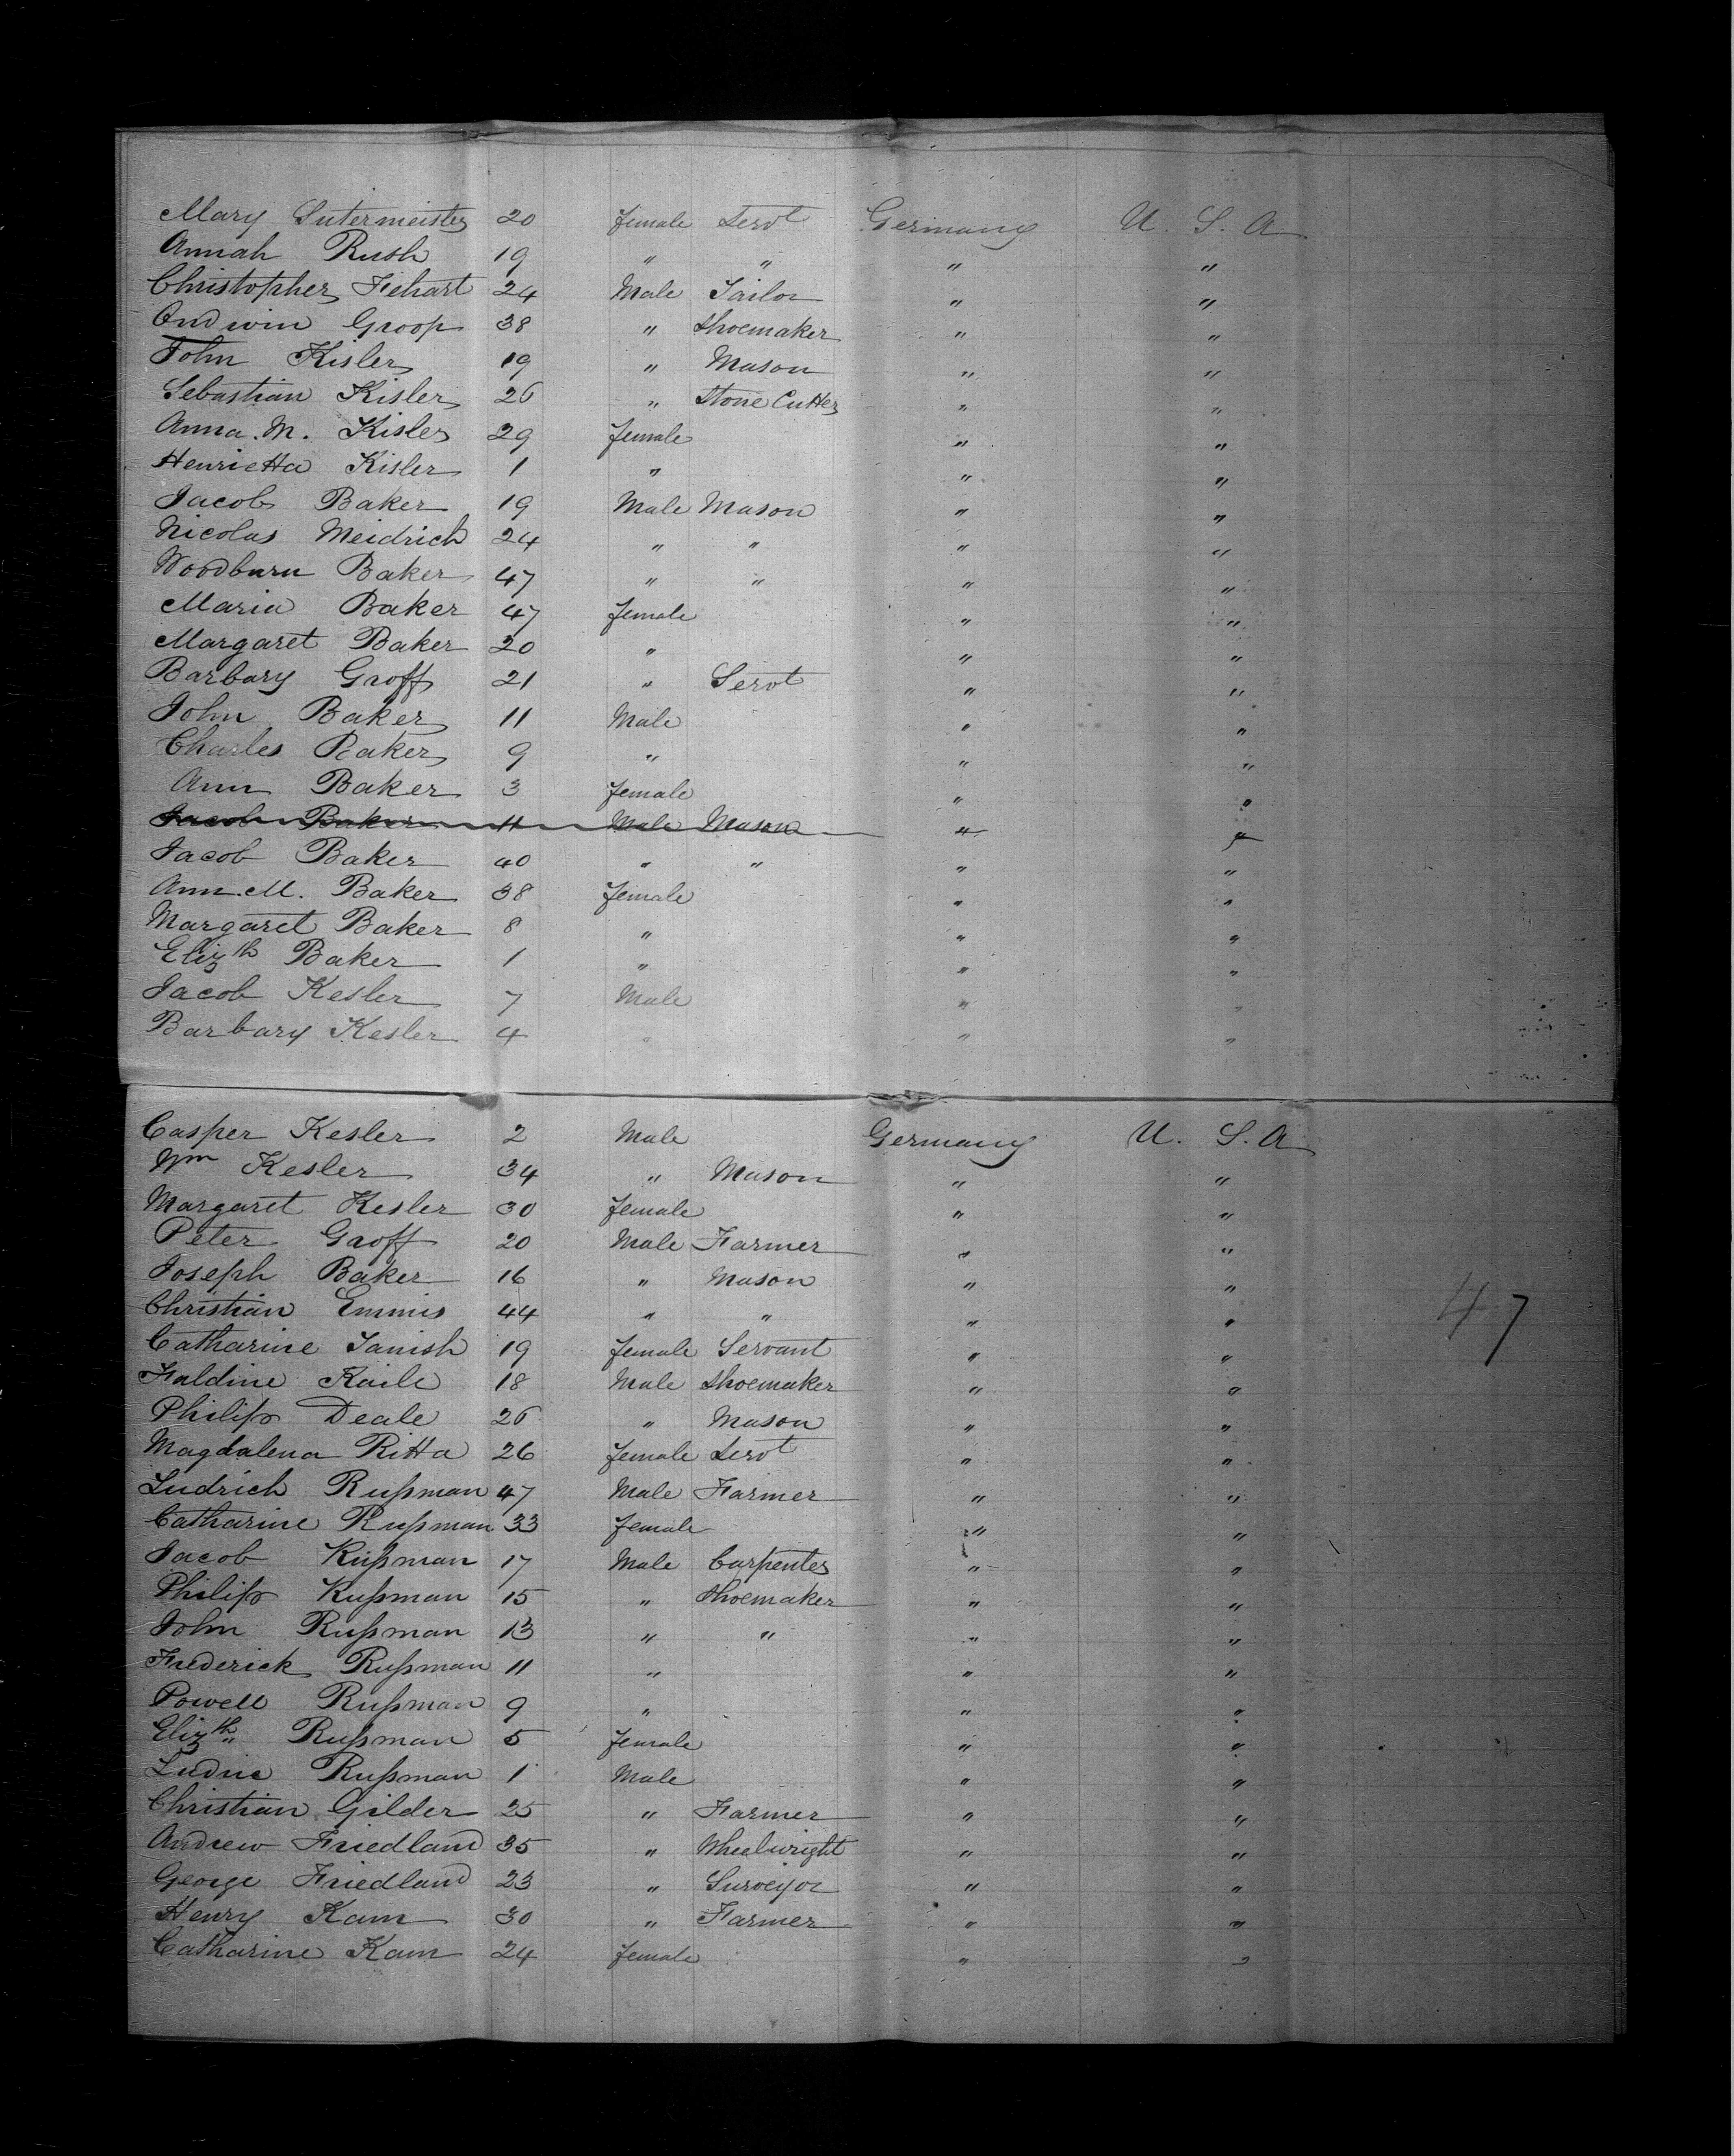 Mary Sutermeister 20 female Servt Germany U. S. A.
Annah Rush 19 " " " "
Christopher Fehart 24 Male Tailor " "
Andwin Groop 38 " Shoemaker " "
John Kisler 19 " Mason " "
Sebastian Kisler 26 " Stone Cutter " "
Anna. M. Kisler 29 female " "
Henrietta Kisler 1 " " "
Jacob Baker 19 Male Mason " "
Nicolas Meidrich 24 " " " "
Woodburn Baker 47 " " " "
Maria Baker 47 female " "
Margaret Baker 20 " " "
Barbary Groff 21 " Servt " "
John Baker 11 Male " "
Charles Baker 9 " " "
Ann Baker 3 female " "
Jacob Baker 11 Male Mason " "
Jacob Baker 40 " " " "
Ann. M. Baker 38 female " "
Margaret Baker 8 " " "
Elizth Baker 1 " " "
Jacob Kesler 7 Male " "
Barbary Kesler 4 " " "
Casper Kesler 2 Male Germany U. S. A
Wm Kesler 34 " Mason " "
Margaret Kesler 30 female " "
Peter Groff 20 Male Farmer " "
Joseph Baker 16 " Mason " "
Christian Emmis 44 " " " "
47
Catharine Janish 19 female Servant " "
Faldine Kaile 18 Male Shoemaker " "
Philip Deale 26 " Mason " "
Magdalena Ritta 26 female Servt " "
Ludrich Rußman 47 Male Farmer " "
Catharine Rußman 33 female " "
Jacob Rußman 17 Male Carpenter " "
Philip Rußman 15 " Shoemaker " "
John Rußman 13 " " " "
Frederick Rußman 11 " " "
Powell Rußman 9 " " "
Elizth Rußman 5 female " "
Ludnie Rußman 1 Male " "
Christian Gilder 25 " Farmer " "
Andrew Friedland 35 " Wheelwright " "
George Friedland 23 " Surveyor " "
Henry Kam 30 " Farmer " "
Catharine Kam 24 female " "